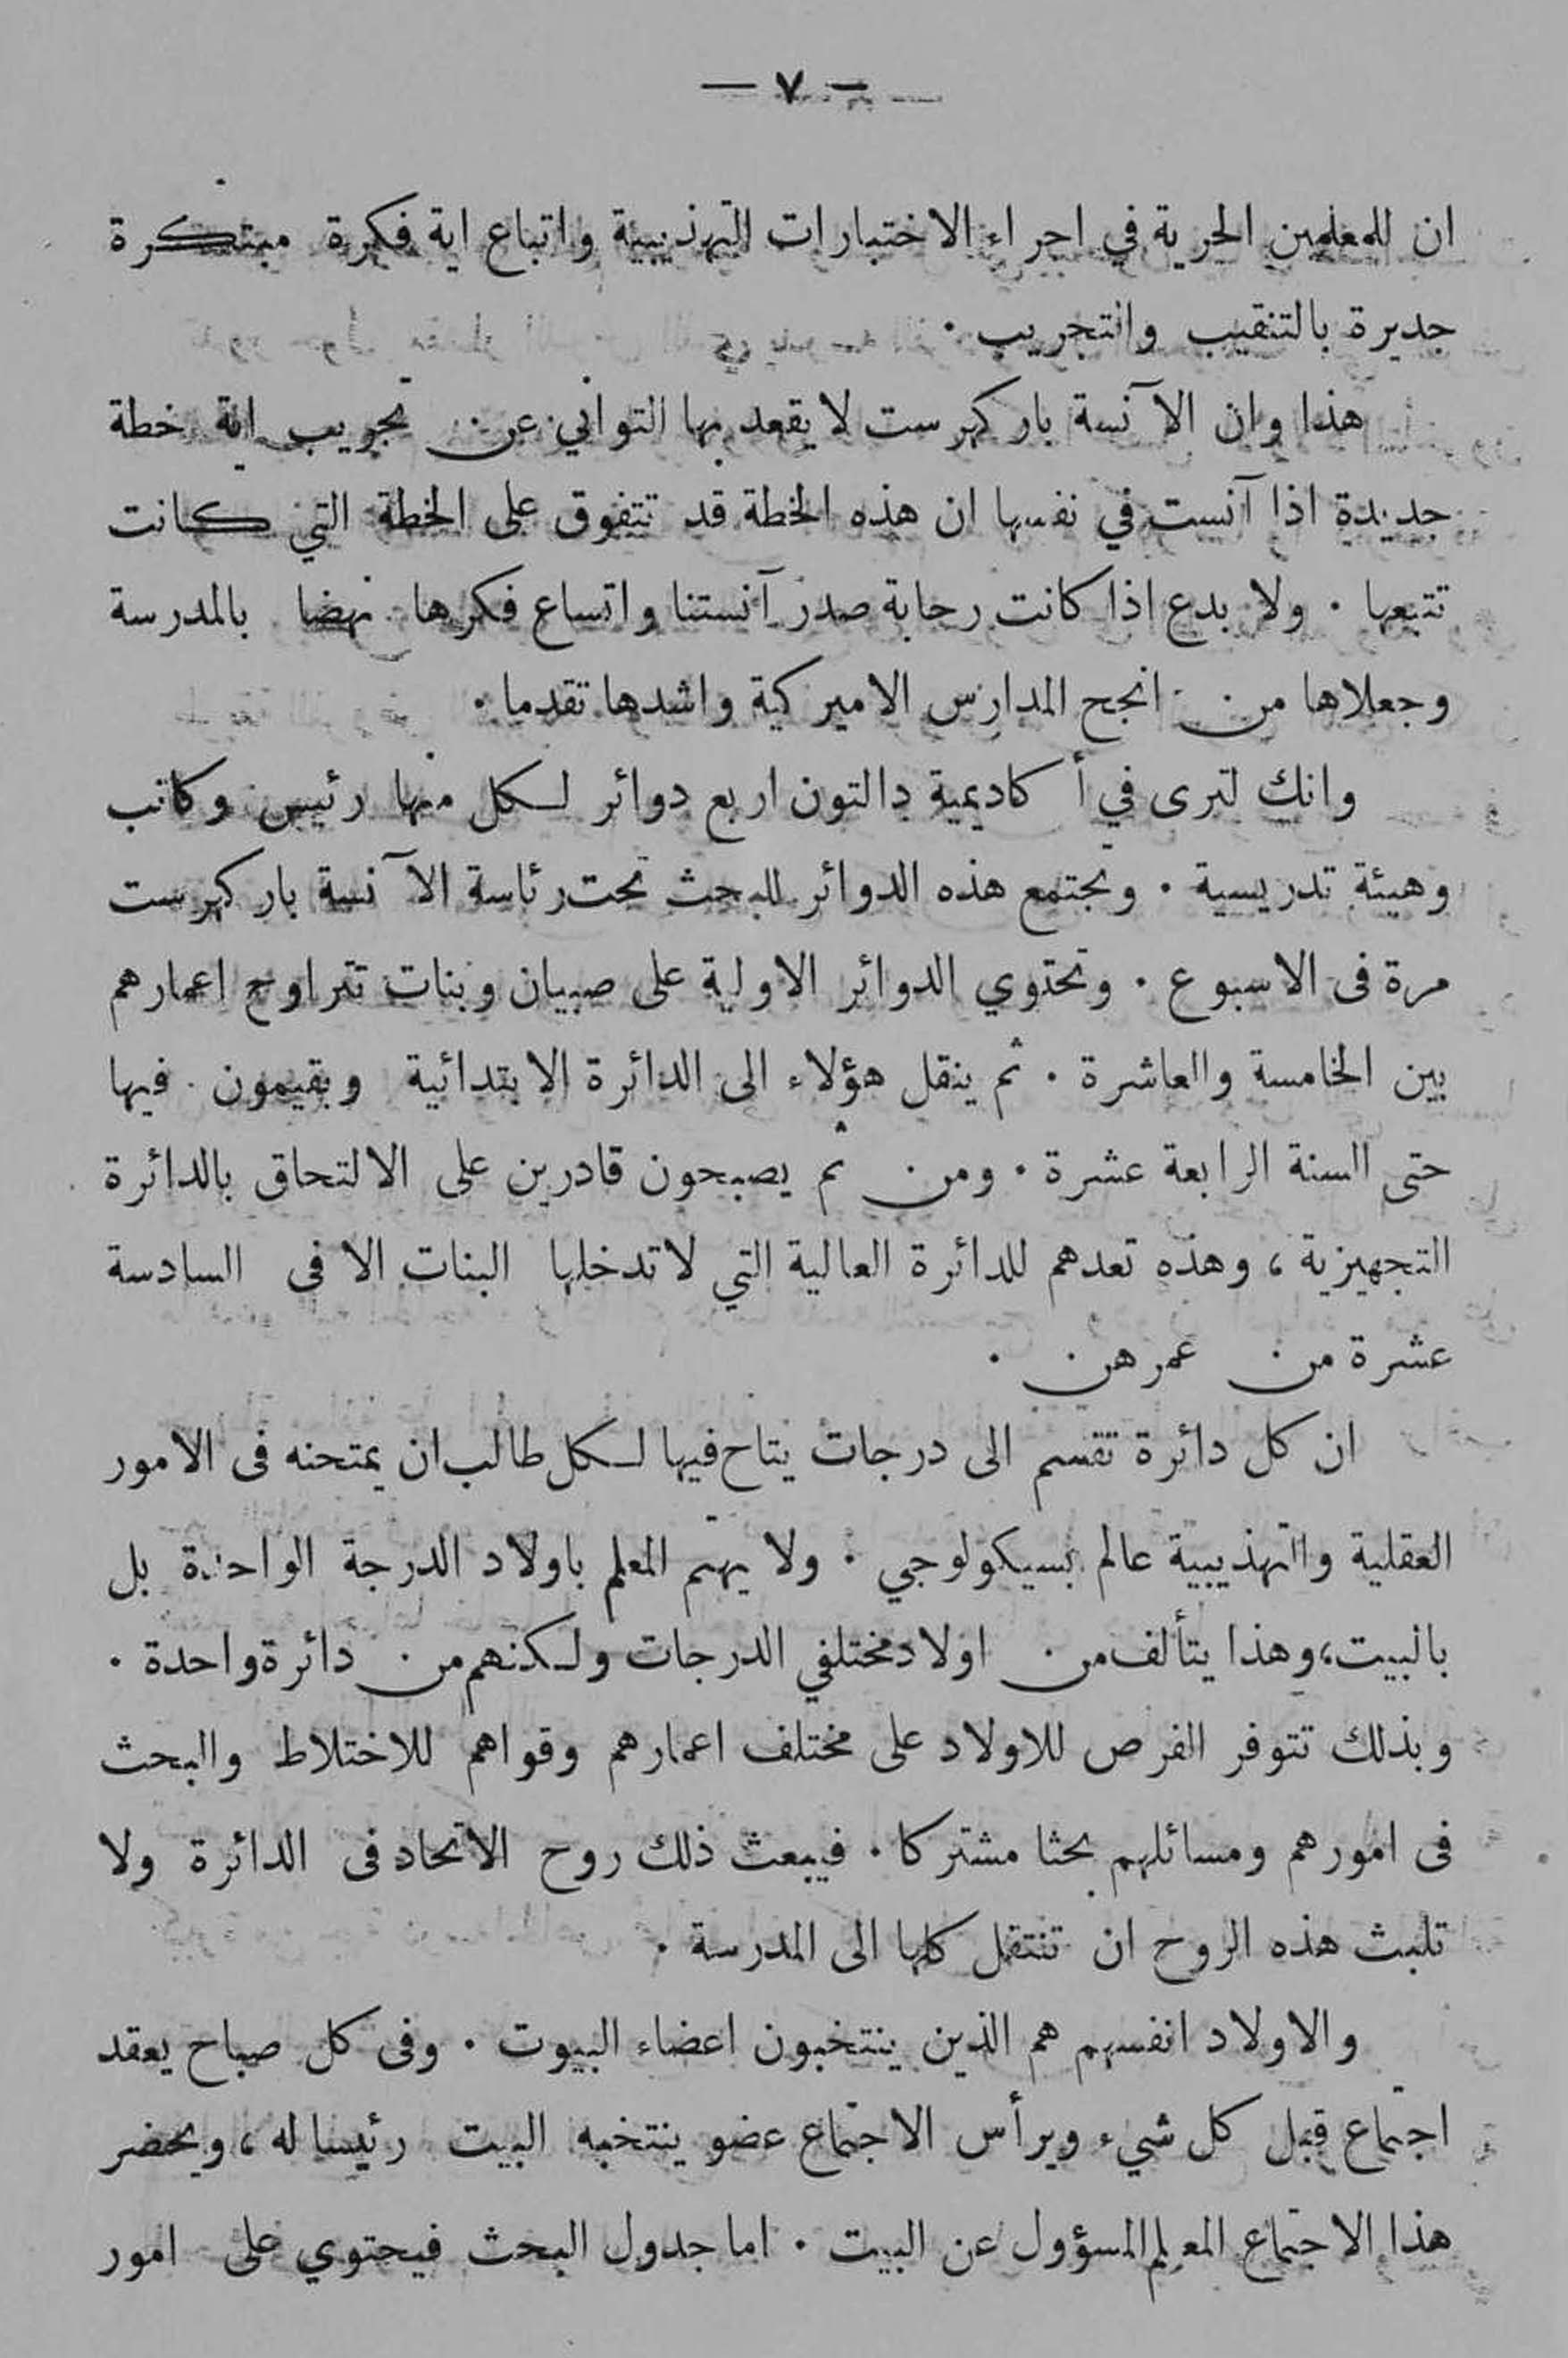 — ٧ —
ان للمعلمين الحرية في اجراء الاختبارات التهذيبية واتباع اية فكرة مبتكرة
جديرة بالتنقيب والتجريب .
هذا وان الآنسة باركهرست لا يقعد بها التواني عن تجريب اية خطة
جديدة اذا آنست في نفسها ان هذه الخطة قد تتفوق على الخطة التي كانت
تتبعها . ولا بدع اذا كانت رحابة صدر آنستنا واتساع فكرها نهضا بالمدرسة
وجعلاها من انجح المدارس الاميركية واشدها تقدما .
وانك لترى في أكاديمية دالتون اربع دوائر لكل منها رئيس وكاتب
وهيئة تدريسية . وتجتمع هذه الدوائر للبحث تحت رئاسة الآنسة باركهرست
مرة فى الاسبوع . وتحتوي الدوائر الاولية على صبيان وبنات تتراوح اعمارهم
بين الخامسة والعاشرة . ثم ينقل هؤلاء الى الدائرة الابتدائية ويقيمون فيها
حتى السنة الرابعة عشرة . ومن ثم يصبحون قادرين على الالتحاق بالدائرة
التجهيزية ، وهذه تعدهم للدائرة العالية التي لا تدخلها البنات الا فى السادسة
عشرة من عمرهن .
ان كل دائرة تقسم الى درجات يتاح فيها لكل طالب ان يمتحنه فى الامور
العقلية والتهذيبية عالم بسيكولوجي . ولا يهتم المعلم باولاد الدرجة الواحدة بل
بالبيت ، وهذا يتألف من اولاد مختلفي الدرجات ولكنهم من دائرة واحدة .
وبذلك تتوفر الفرص للاولاد على مختلف اعمارهم وقواهم للاختلاط والبحث
فى امورهم ومسائلهم بحثا مشتركا . فيبعث ذلك روح الاتحاد فى الدائرة ولا
تلبث هذه الروح ان تنتقل كلها الى المدرسة .
والاولاد انفسهم هم الذين ينتخبون اعضاء البيوت . وفى كل صباح يعقد
اجتماع قبل كل شيء ويرأس الاجتماع عضو ينتخبه البيت رئيسا له ، ويحضر
هذا الاجتماع المعلم المسؤول عن البيت . اما جدول البحث فيحتوي على امور